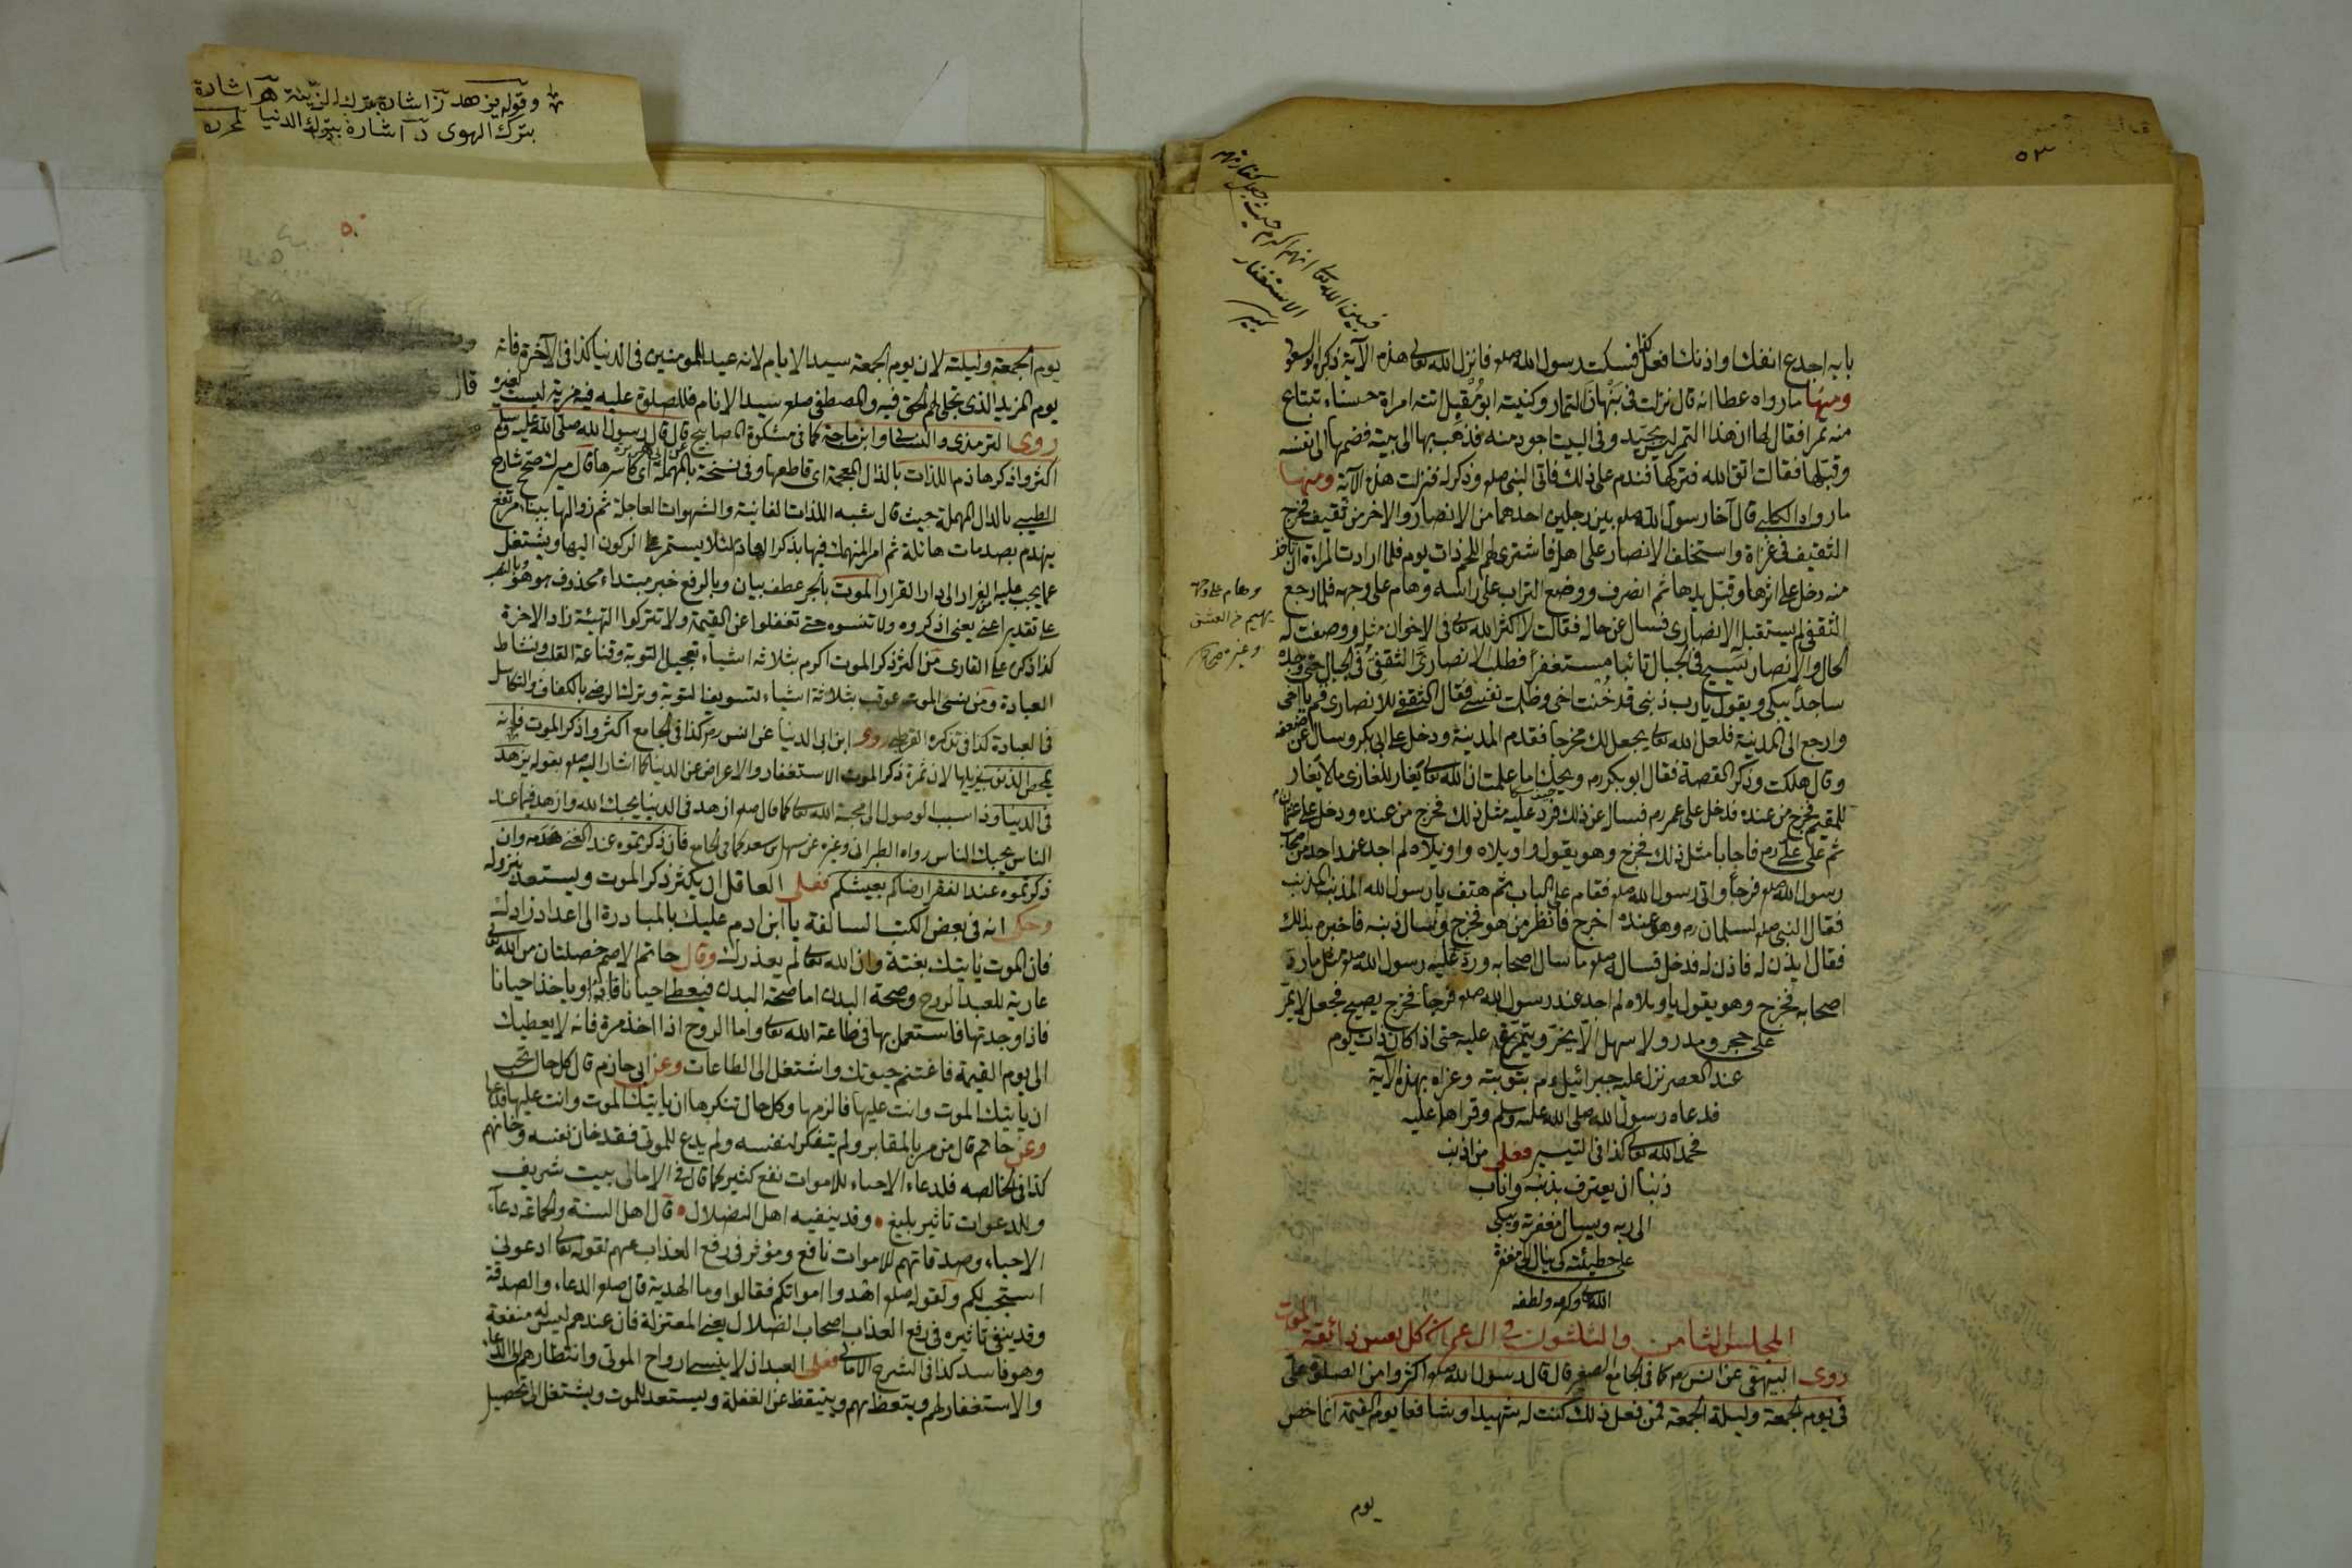 ٥٣
فبين الله تعالى انهم اكرم حيث جعل كفارتهم
الاستغفار
بابه اجدع انفك واذنك افعل كذا فسكت رسول الله صلعم فانزل الله تعالى هذه الآية ذكره الواسطي
ومنها ما رواه عطا انه قال نزلت في نبهان التمار وكنيته ابو مقبل اتته امراة حسناء تبتاع
منه تمرا فقال لها ان هذا التمر ليس بجيد وفي البيت اجود منه فذهب بها الى بيته فضمها الى نفسه
وقبلها فقالت اتق الله فتركها فندم على ذلك فاتى النبي صلعم وذكر له فنزلت هذه الآية ومنها
ما رواه الكلبي قال آخا رسول الله صلعم بين رجلين احدهما من الانصار والاخر من ثقيف فخرج
الثقيف في غزاة واستخلف الانصار على اهله فاشترى لهم اللحم ذات يوم فلما ارادت المراة ان تاخذ
منه دخل على اثرها وقبل يدها ثم انصرف ووضع التراب على راسه وهام على وجهه فلما رجع
وهام على وجهه
يهيم من العشق
وغيره صحاح
الثقفي لم يستقبل الانصاري فسال عن حاله فقالت لا اكثر الله تعالى في الاخوان مثله ووصفت له
الحال والانصار يسيح في الجبال تائبا مستغفرا فطلب الانصاري الثقفي في الجبال حتى وجده
ساجدا يبكي ويقول يا رب ذنبي قد خنت اخي وظلمت نفسي فقال الثقفي للانصاري قم يا اخي
وارجع الى المدينة فلعل الله تعالى يجعل لك مخرجا فقدم المدينة ودخل على ابي بكر وسال عن ضعفه
وقال هلكت وذكر القصة فقال ابو بكر رم ويحك اما علمت ان الله تعالى يغار للغازي ما لا يغار
للمقيم فخرج من عنده فدخل على عمر رم فسال عن ذلك فرد عليه مثل ذلك فخرج من عنده ودخل على عثمان
ثم على علي رم فاجابا مثل ذلك فخرج وهو يقول واويلاه واويلاه لم اجد عند احد من اصحاب
رسول الله صلعم فرجا واتى رسول الله صلعم فقام على الباب ثم هتف يا رسول الله المذنب المذنب
فقال النبي صلعم لسلمان رم وهو عنده اخرج فانظر من هو فخرج وسال ذنبه فاخبره بذلك
فقال ايذن له فاذن له فدخل فساله صلعم ما سال اصحابه ورد عليه رسول الله صلعم مثل ما رد
اصحابه فخرج وهو يقول يا ويلاه لم اجد عند رسول الله صلعم فرجا فخرج يصيح فجعل لا يمر
على حجر ومدر ولا سهل الا يخر ويتمرغ عليه حتى اذا كان ذات يوم
عند العصر نزل عليه جبرائيل عم بتوبته وعزاه بهذه الآية
فدعاه رسول الله صلى الله عليه وسلم وقراها عليه
فحمد الله تعالى كذا في التيسير فعلى من اذنب
ذنبا ان يعترف بذنبه واناب
الى ربه ويسال مغفرته ويبكي
على خطيئته كي ينال الى مغفرة
الله تعالى وكرمه ولطفه
المجلس الثامن والثلثون في ال عمران كل نفس ذائقة الموت
روى البيهقي عن انس رم كما في الجامع الصغير قال قال رسول الله صلعم اكثروا من الصلوة علي
في يوم الجمعة وليلة الجمعة فمن فعل ذلك كنت له شهيدا وشافعا يوم القيمة انما خص
يوم
وقوله يزهد ز اشارة بترك الزينة هـ اشارة
بترك الهوى د اشارة بترك الدنيا لمحرره
٥٠
يوم الجمعة وليلته لان يوم الجمعة سيد الايام لانه عيد للمومنين في الدنيا كذا في الآخرة فانه
يوم المزيد الذي تجلى لهم الحق فيه والمصطفى صلعم سيد الانام فللصلوة عليه فيه مزية ليست لغيره
قال
روى الترمذي والنسائي وابن ماجة كما في مشكوة المصابيح عن ابي هريرة قال قال رسول الله صلى الله عليه وسلم
اكثروا ذكر هاذم اللذات بالذال المعجمة اى قاطعها وفي نسخة بالمهملة اى كاسرها قال ميرك صحح شارح
الطيبي بالدال المهملة حيث قال شبه اللذات الفانية والشهوات العاجلة ثم زوالها ببناء مرتفع
ينهدم بصدمات هائلة ثم امر المنهمك فيها بذكر الهادم لئلا يستمر على الركون اليها ويشتغل
عما يجب عليه من الفرار الى دار القرار الموت بالجر عطف بيان وبالرفع خبر مبتداء محذوف هو هو وبالنصب
على تقدير اعنى يعنى اذكروه ولا تنسوه حتى تغفلوا عن القيمة ولا تتركوا التهيئة زاد الاخرة
كذا ذكره على القارى من اكثر ذكر الموت اكرم بثلاثة اشياء تعجيل التوبة وقناعة القلب ونشاط
العبادة ومن نسى الموت عوقب بثلاثة اشياء تسويف التوبة وترك الرضى بالكفاف والتكاسل
في العبادة كذا في تذكرة القرطبي روى ابن ابي الدنيا عن انس رم كذا في الجامع اكثروا ذكر الموت فانه
يمحص الذنوب ويزيلها لان ثمرة ذكر الموت الاستغفار والاعراض عن الدنيا كما اشار اليه صلعم بقوله يزهد
في الدنيا وذا سبب لوصول الى محبة الله تعالى كما قال صلعم ازهد في الدنيا يحبك الله وازهد فيما عند
الناس يحبك الناس رواه الطبراني وغيره عن سهل بن سعد كما في الجامع فان ذكرتموه عند الغنى هدمه وان
ذكرتموه عند الفقر ارضاكم بعيشكم فعلى العاقل ان يكثر ذكر الموت ويستعد بنزوله
وحكى انه في بعض الكتب السالفة يا ابن ادم عليك بالمبادرة الى اعداد زادك
فان الموت ياتيك بغتة وان الله تعالى لم يعذرك وقال حاتم الاصم خصلتان من الله تعالى
عارية للعبد الروح وصحة البدن اما صحة البدن فيعطى احيانا وياخذ احيانا
فاذا وجدتها فاستعمل بها في طاعة الله تعالى واما الروح اذا اخذ مرة فانه لا يعطيك
الى يوم القيمة فاغتنم حيوتك واشتغل الى الطاعات وعن ابي حازم قال كل حال تحب
ان ياتيك الموت وانت عليها فالزمها وكل حال تنكرها ان ياتيك الموت وانت عليها فدعها
وعن حاتم قال من مر بالمقابر ولم يتفكر لنفسه ولم يدع للموتى فقد خان نفسه وخانهم
كذا في الخالصه فلدعاء الاحياء للاموات نفع كثير كما قال في الامالى ببيت شريف
وللدعوات تاثير بليغ • وقد ينفيه اهل الضلال • قال اهل السنة والجماعة دعاء
الاحياء وصدقاتهم للاموات نافع ومؤثر في رفع العذاب عنهم لقوله تعالى ادعوني
استجب لكم ولقوله صلعم اهدوا امواتكم فقالوا وما الهدية قال صلعم الدعاء والصدقة
وقد ينفى تاثيره في رفع العذاب اصحاب الضلال يعنى المعتزلة فان عندهم ليس له منفعة
وهو فاسد كذا في الشرح الامالى فعلى العبد ان لا ينسى ارواح الموتى وانتظارهم الى الدعاء
والاستغفار لهم ويتعظ بهم ويتيقظ عن الغفلة ويستعد للموت ويشتغل الى تحصيل